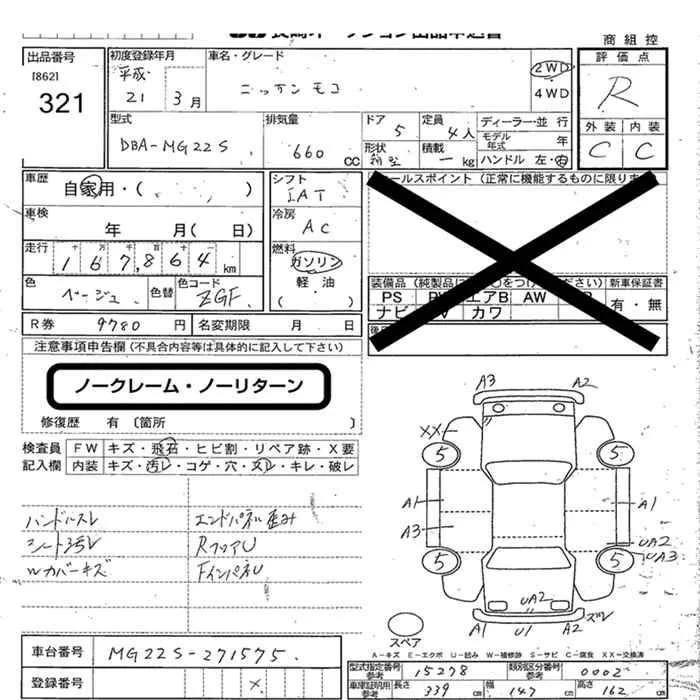 商組控
出品番号
[862]
321
初度登録年月
平成
21 3月
車名・グレード
ニッサンモコ
2WD
4WD
評価点
R
外装 内装
C C
型式
DBA-MG22S
排気量
660 cc
ドア
5
定員
4人
形状
積載
kg
ディーラー・並行
モデル年式 年
ハンドル 左・右
車歴
自家用・( )
車検
年 月( 日)
走行
167,864 km
色
ベージュ
色替
色コード
ZGF
シフト
IAT
冷房
AC
燃料
ガソリン
軽油
( )
セールスポイント(正常に機能するものに限ります
装備品
新車保証書
PS
エアB AW
ナビ
カワ
有・無
R券 9780 円
名変期限 月 日
注意事項申告欄(不具合内容等は具体的に記入して下さい)
ノークレーム・ノーリターン
修復歴 有〔箇所 〕
検査員
記入欄
FW キズ・飛石・ヒビ割・リペア跡・X要
内装 キズ・汚レ・コゲ・穴・スレ・キレ・破レ
ハンドルスレ エンドパネル歪み
シート汚レ RフロアU
Wカバーキズ FインパネU
A3 A2
XX
5 5
A1 A1
A3
UA2
UA3
5 5
UA2
ズレ
A1 U1 A2
スペア
A-キズ E-エクボ U-凹み W-補修跡 S-サビ C-腐食 XX-交換済
車台番号
MG22S-271575.
登録番号
×
型式指定番号
参考
15278
類別区分番号
参考
0002
車庫証明用
参考
長さ 339 幅 147 高さ 162 cm